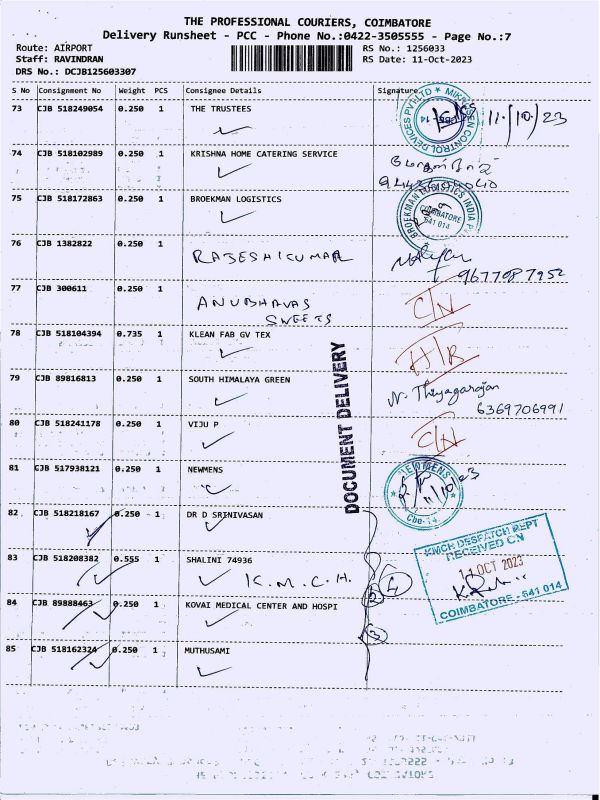 THE PROFESSIONAL COURIERS, COIMBATORE
Delivery Runsheet - PCC - Phone No.:0422-3505555 - Page No.:7
Route: AIRPORT RS No.: 1256033
Staff: RAVINDRAN RS Date: 11-Oct-2023
DRS No.: DCJB125603307
S No Consignment No Weight PCS Consignee Details Signature
73 CJB 518249054 0.250 1 THE TRUSTEES 11/10/23
CONTROL DEVICES PVT LTD
74 CJB 518102989 0.250 1 KRISHNA HOME CATERING SERVICE
75 CJB 518172863 0.250 1 BROEKMAN LOGISTICS
BROEKMAN LOGISTICS INDIA
COIMBATORE
641 014
76 CJB 1382822 0.250 1 RAJESHKUMAR
9677087952
77 CJB 300611 0.250 1 ANUBHAVAS SWEETS C/N
78 CJB 518104394 0.735 1 KLEAN FAB GV TEX H/R
79 CJB 89816813 0.250 1 SOUTH HIMALAYA GREEN N. Thiyagarajan
6369706991
80 CJB 518241178 0.250 1 VIJU P C/N
DOCUMENT DELIVERY
81 CJB 517938121 0.250 1 NEWMENS
NEWMENS
11/10/23
Cbe-14
82 CJB 518218167 0.250 1 DR D SRINIVASAN
83 CJB 518208382 0.555 1 SHALINI 74936
K.M.C.H.
KMCH DESPATCH DEPT
RECEIVED ON
11 OCT 2023
COIMBATORE - 641 014
84 CJB 89888463 0.250 1 KOVAI MEDICAL CENTER AND HOSPI
85 CJB 518162324 0.250 1 MUTHUSAMI